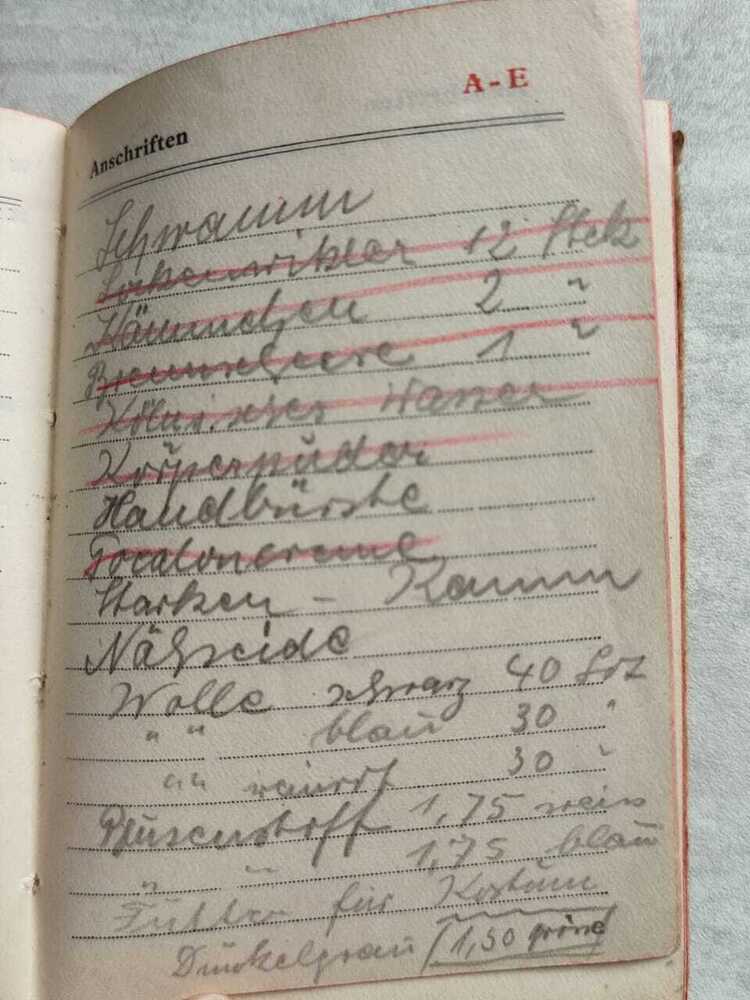 A-E
Anschriften
Schwamm
Lokenwikler 12 Stck
Kämmchen 2 "
Brennschere 1 "
Kölnisches Wasser
Körperpuder
Handbürste
Tocaloncreme
Starken - Kamm
Nähseide
Wolle schwarz 40 Grs
" " blau 30 "
" " 30 "
Blusenstoff 1,75 weis
" " 1,75 blau
Futter für Kostüm
Dunkelgrau (1,50